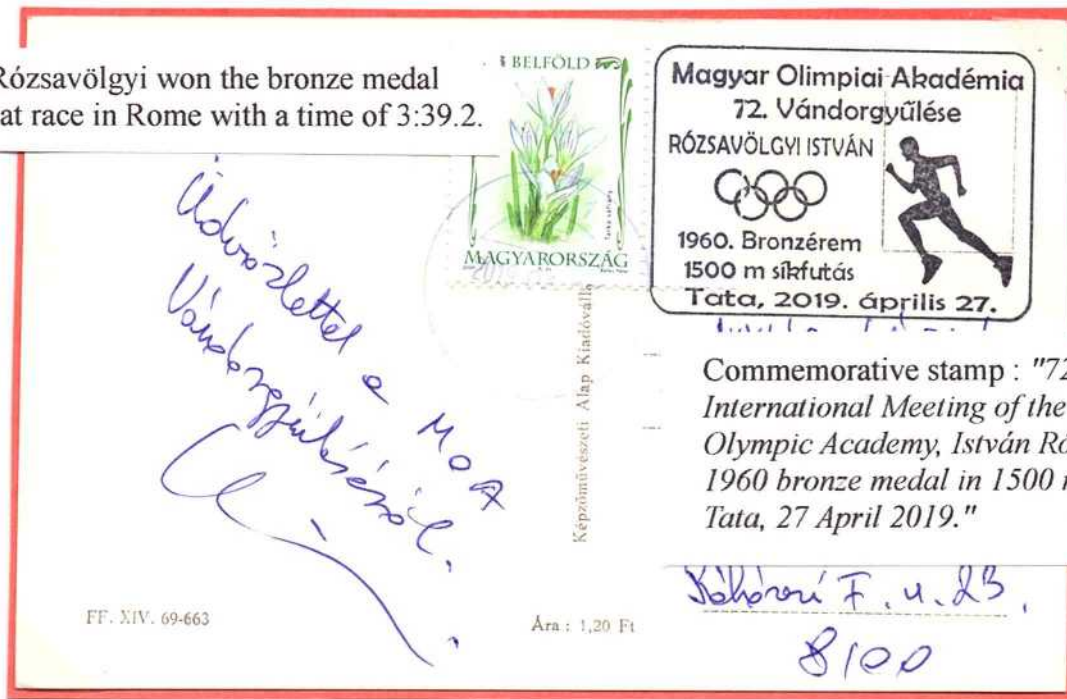 Rózsavölgyi won the bronze medal
at race in Rome with a time of 3:39.2.
BELFÖLD
MAGYARORSZÁG
Magyar Olimpiai Akadémia
72. Vándorgyűlése
RÓZSAVÖLGYI ISTVÁN
1960. Bronzérem
1500 m síkfutás
Tata, 2019. április 27.
Üdvözlettel a MOA
Vándorgyűléséről.
Képzőművészeti Alap Kiadóválla
Commemorative stamp : "72
International Meeting of the
Olympic Academy, István Ró
1960 bronze medal in 1500 m
Tata, 27 April 2019."
F. u. 23.
8100
FF. XIV. 69-663
Ára : 1,20 Ft